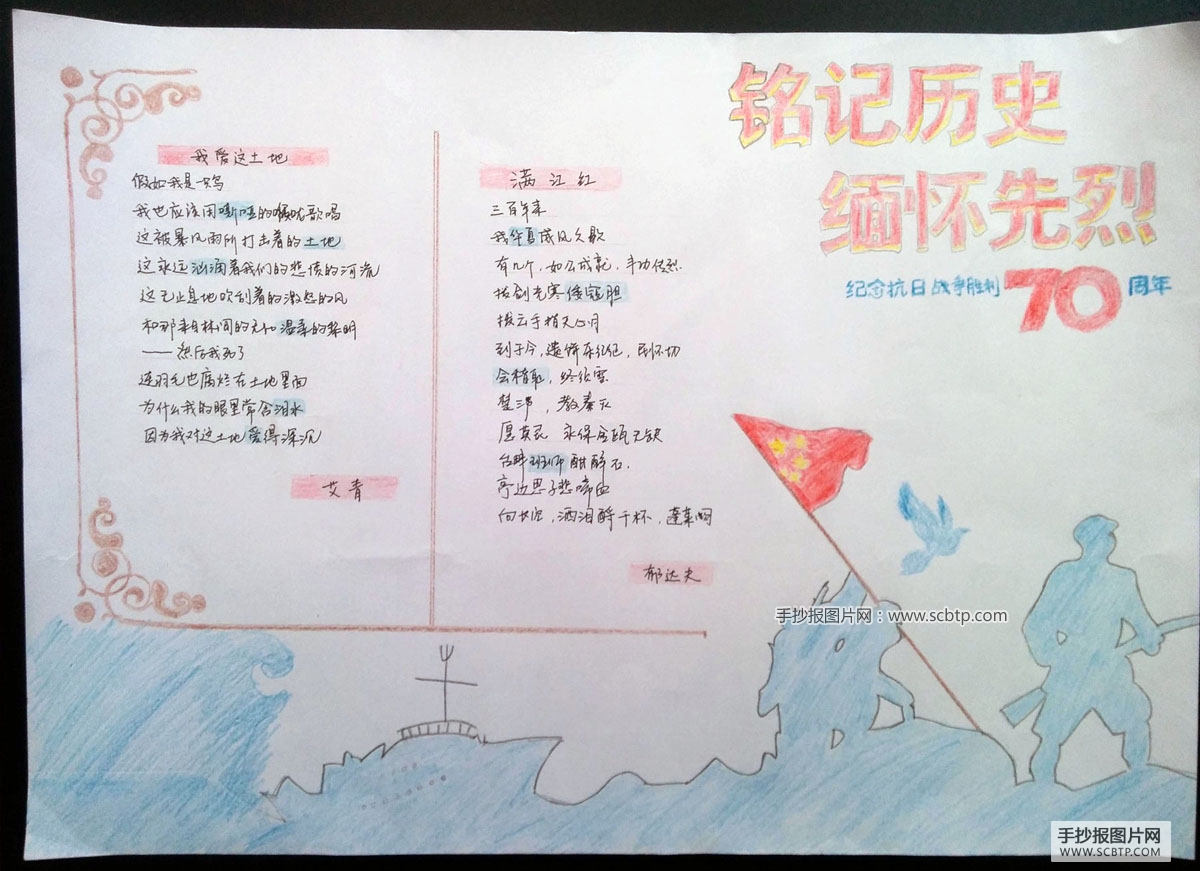 铭记历史
缅怀先烈
纪念抗日战争胜利70周年
我爱这土地
假如我是一只鸟
我也应该用嘶哑的喉咙歌唱
这被暴风雨所打击着的土地
这永远汹涌着我们的悲愤的河流
这无止息地吹刮着的激怒的风
和那来自林间的无比温柔的黎明
——然后我死了
连羽毛也腐烂在土地里面
为什么我的眼里常含泪水
因为我对这土地爱得深沉
艾青
满江红
三百年来
我华夏威风久歇
有几个，如公成就，丰功伟烈.
拔剑光寒倭寇胆
拨云手指天心月
到于今，遗饼，民怀切
会稽耻，终须雪
楚三户，教秦灭
愿英灵 永保金瓯无缺
台畔班师酣醉石.
亭边思子悲啼血
向长空，洒泪酹千杯，蓬莱阙
郁达夫
手抄报图片网：www.scbtp.com
手抄报图片网
WWW.SCBTP.COM